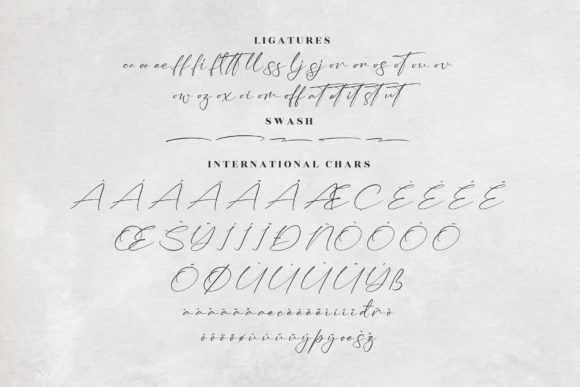 LIGATURES
cc oo ee ff fi fl tt ll ss lj sj on or os ot ou ov
ow oz ox oi om off at et it st ut
SWASH
INTERNATIONAL CHARS
À Á Â Ã Ä Å Æ Ç È É Ê Ë
Œ Š Ÿ Ì Í Î Ï Ð Ñ Ò Ó Ô Õ
Ö Ø Ù Ú Û Ü Ý ß
à á â ã ä å æ ç è é ê ë ì í î ï đ ñ ò
ó ô õ ö ø ù ú û ü ý þ ÿ œ š ž